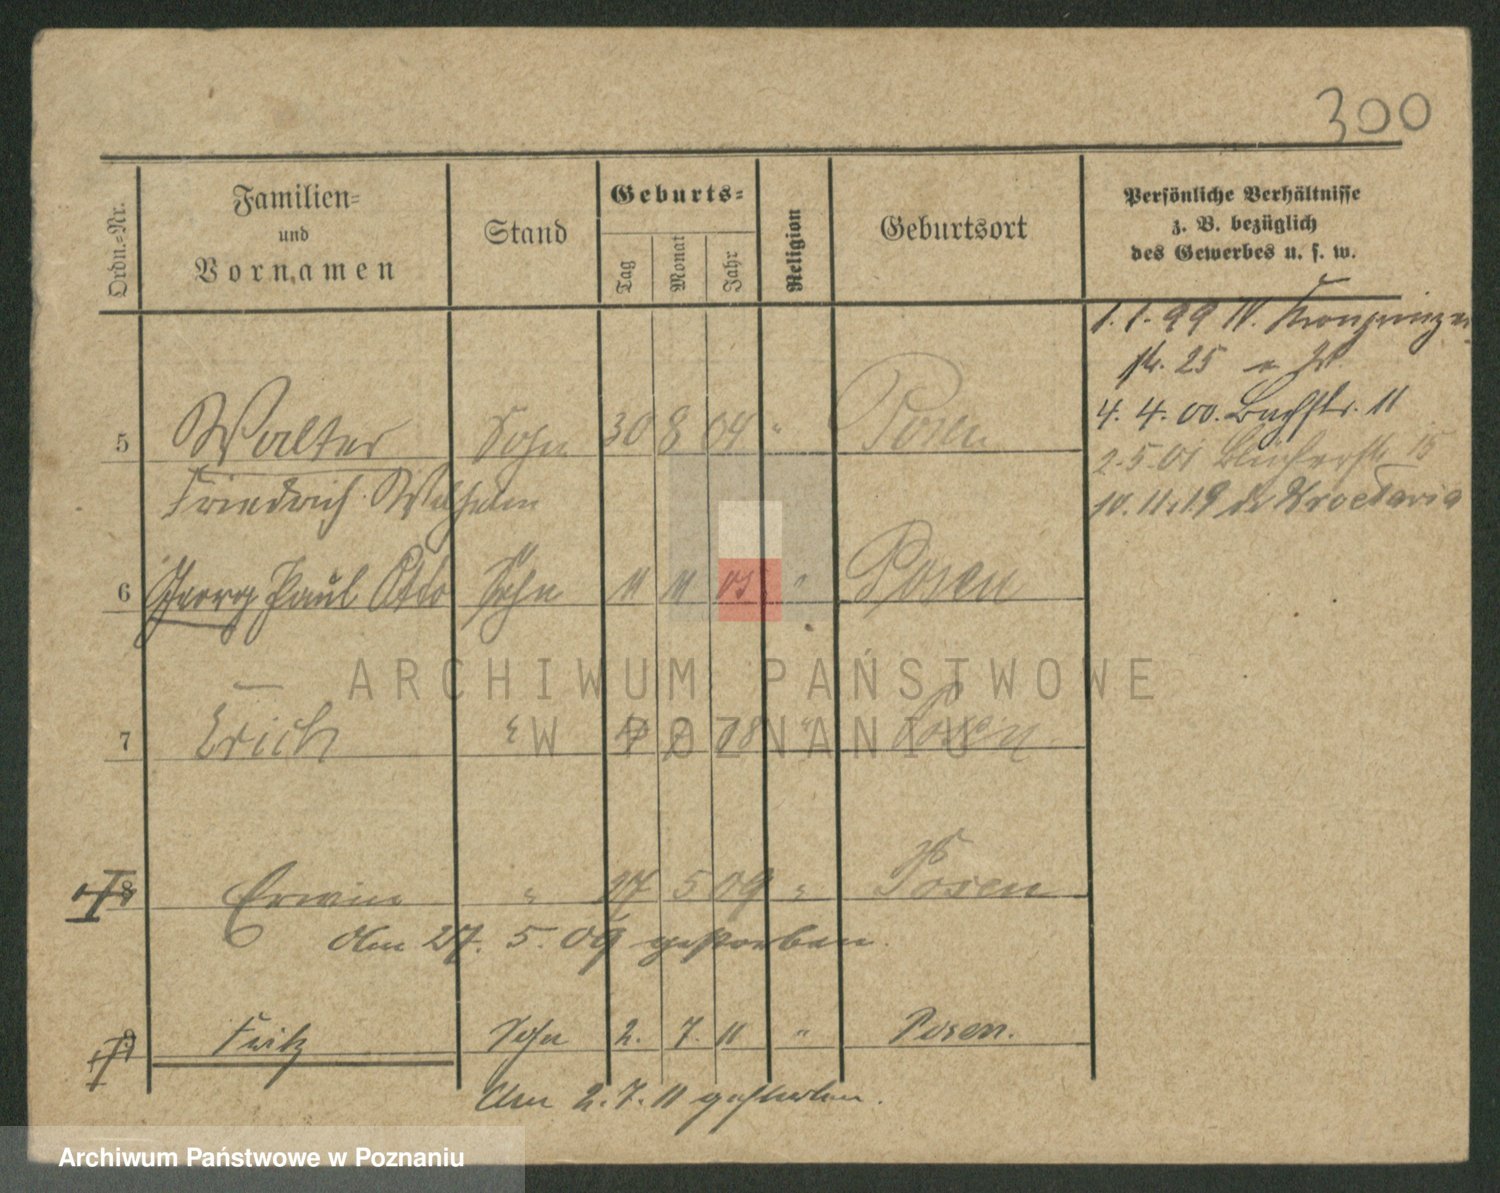 300
Ordn.=Nr.
Familien=
und
Vornamen
Stand
Geburts=
Tag
Monat
Jahr
Religion
Geburtsort
Persönliche Verhältnisse
z. B. bezüglich
des Gewerbes u. s. w.
1.1.99 IV. Kronprinzen
str. 25
4. 4. 00. Bachstr. 11
2.5.01 Blücherstr. 15
10.11.19
5 Walter Sohn 30 8 04 " Posen
Friedrich Wilhelm
6 Georg Paul Otto Sohn 11 11 05 " Posen
7 Erich " 08 " Posen
8 Erwin " 17 5 09 " Posen
Am 27. 5. 09 gestorben.
9 Fritz Sohn 2. 7. 11 " Posen.
Am 2.7.11 gestorben.
ARCHIWUM PAŃSTWOWE
W POZNANIU
Archiwum Państwowe w Poznaniu